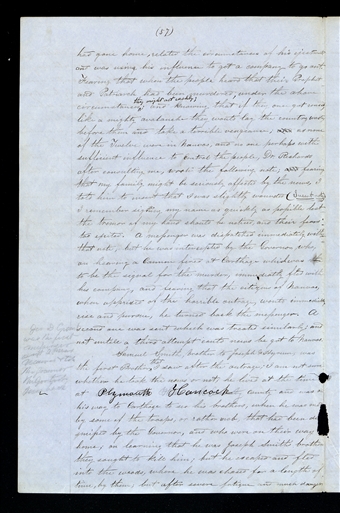 (57)
had gone home, relates the circumstances of his
and was using his influence to get a company to go out
fearing that when the people heard that their Prophet
and Patriarch had been murdered, under the above
they might act rashly
circumstances, and knowing that if the once got
like a mighty avalanche they would lay the country waste
before them and take a terrible vengeance, as none
of the Twelve were in Nauvoo, and no one perhaps with
sufficient influence to control the people, Dr Richards
after consulting me, wrote the following note, and fearing
that my family might be seriously affected by the news, I
told him to insert that I was slightly wounded
I remember signing my name as quickly as possible lest
the tremor of my hand should be noticed, and their fears
too excited. A messenger was despatched immediately with
that note, but he was intercepted by the Governor, who,
on hearing a Cannon fired at Carthage which was
to be the signal for the murder, immediately fled with
his company, and fearing that the citizens of Nauvoo,
when apprised of the horrible outrage, would immediately
rise and pursue, he turned back the messenger. A
second one was sent which was treated similarly; and
not until a third attempt could news be got to Nauvoo
Samuel Smith, brother to Joseph and Hyrum was
the first brother, that I saw after the outrage; I am not sure
whether he took the news or not he lived at the time
at Plymouth Hancock county and was on
his way to Carthage to see his brothers, when he was met
by some of the troops, or rather mob that had been
by the Governor, and who were on their way
home, on learning that he was Joseph Smith's brother
they sought to kill him; but he escaped and fled
into the woods, where he was chased for a length of
time, by them; but after severe fatigue and much danger